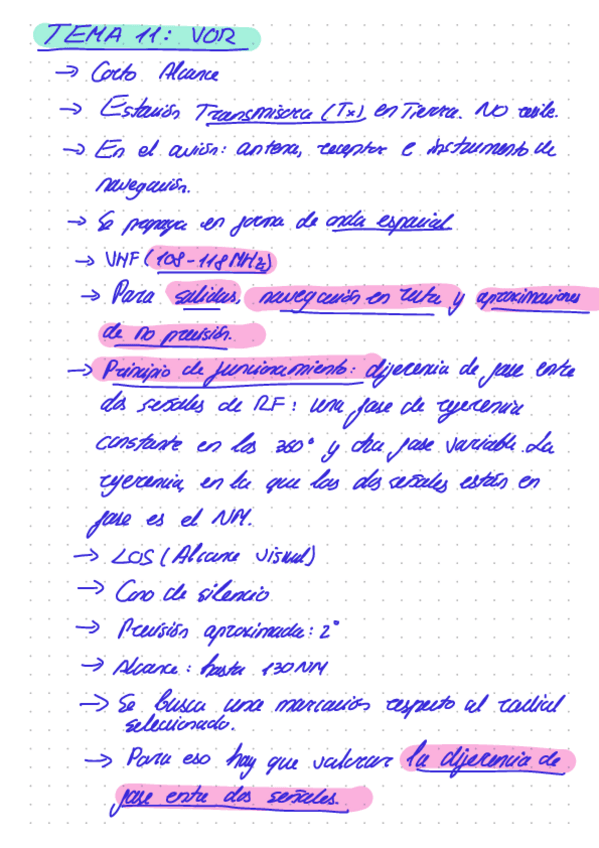 TEMA 11: VOR
→ Corto Alcance
→ Estación Transmisora (Tx) en Tierra. NO
→ En el avión: antena, receptor e instrumento de
navegación.
→ Se propaga en forma de onda espacial
→ VHF (108-118MHz)
→ Para salidas, navegación en ruta y aproximaciones
de no precisión.
→ Principio de funcionamiento: diferencia de fase entre
dos señales de RF: una fase de referencia
constante en los 360° y otra fase variable. La
referencia, en la que las dos señales están en
fase es el NM.
→ LOS (Alcance visual)
→ Cono de silencio
→ Precisión aproximada: 2°
→ Alcance: hasta 130NM
→ Se busca una marcación respecto al radial
seleccionado.
→ Para eso hay que valorar la diferencia de
fase entre dos señales.